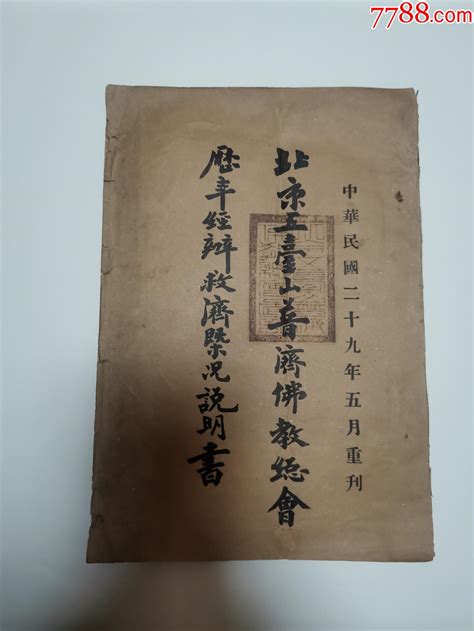 7788.com
中華民國二十九年五月重刊
北京五臺山普濟佛教總會
歷年經辦救濟槩况說明書